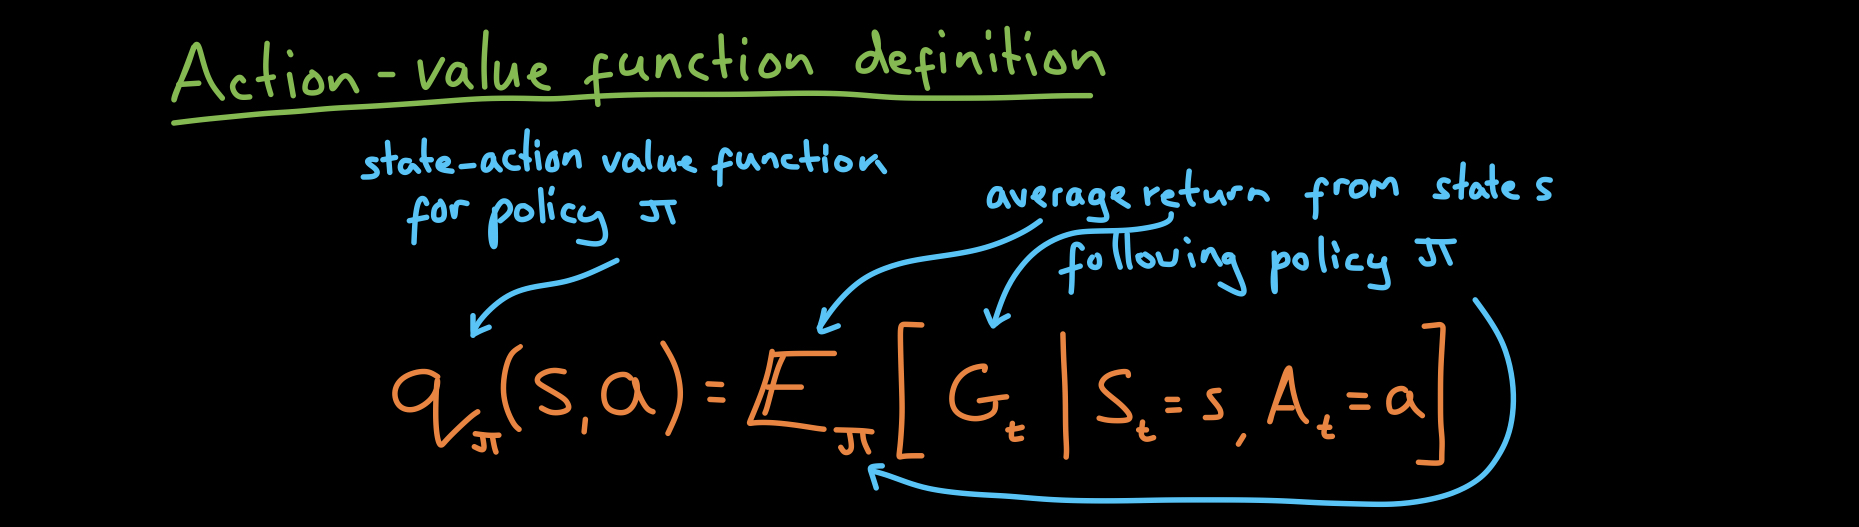 Action-value function definition
state-action value function
for policy π
average return from state s
following policy π
q_π(s,a) = 𝔼_π[G_t | S_t = s, A_t = a]